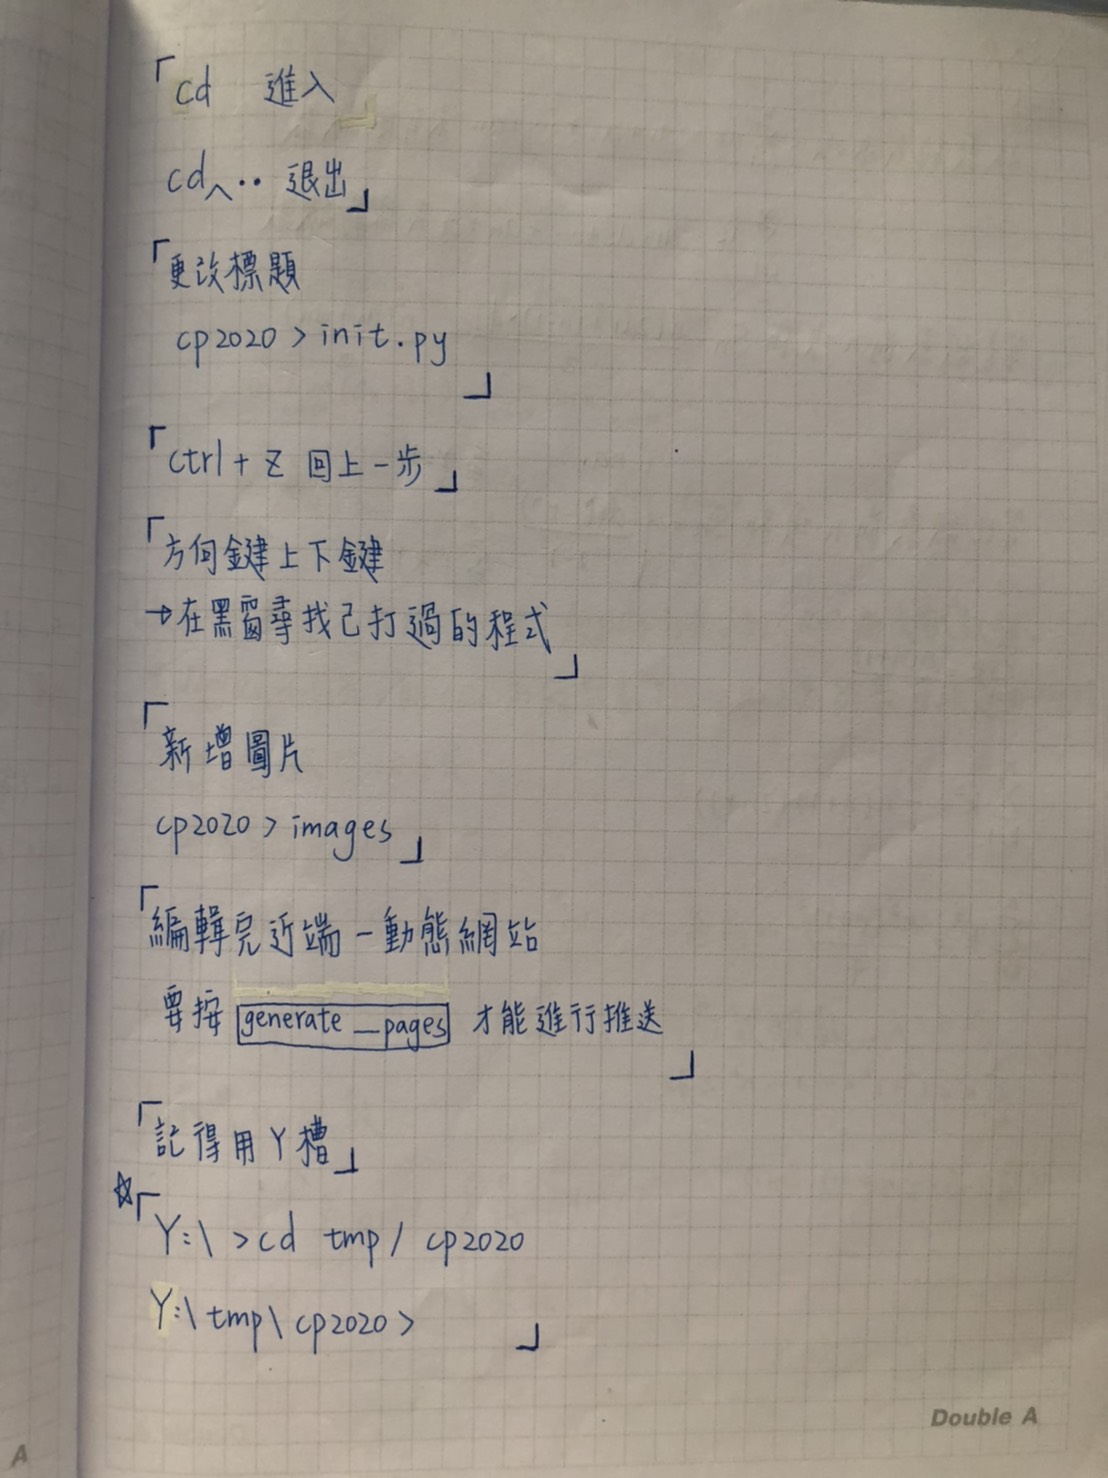 「cd 進入
cd^.. 退出」
「更改標題
cp2020 > init.py
」
「ctrl + Z 回上一步」
「方向鍵上下鍵
→在黑窗尋找己打過的程式
」
「新增圖片
cp2020 > images」
「編輯完近端-動態網站
要按 generate_pages 才能進行推送
」
「記得用Y槽」
☆「
Y:\ >cd tmp/ cp2020
Y:\tmp\cp2020> 」
Double A
A